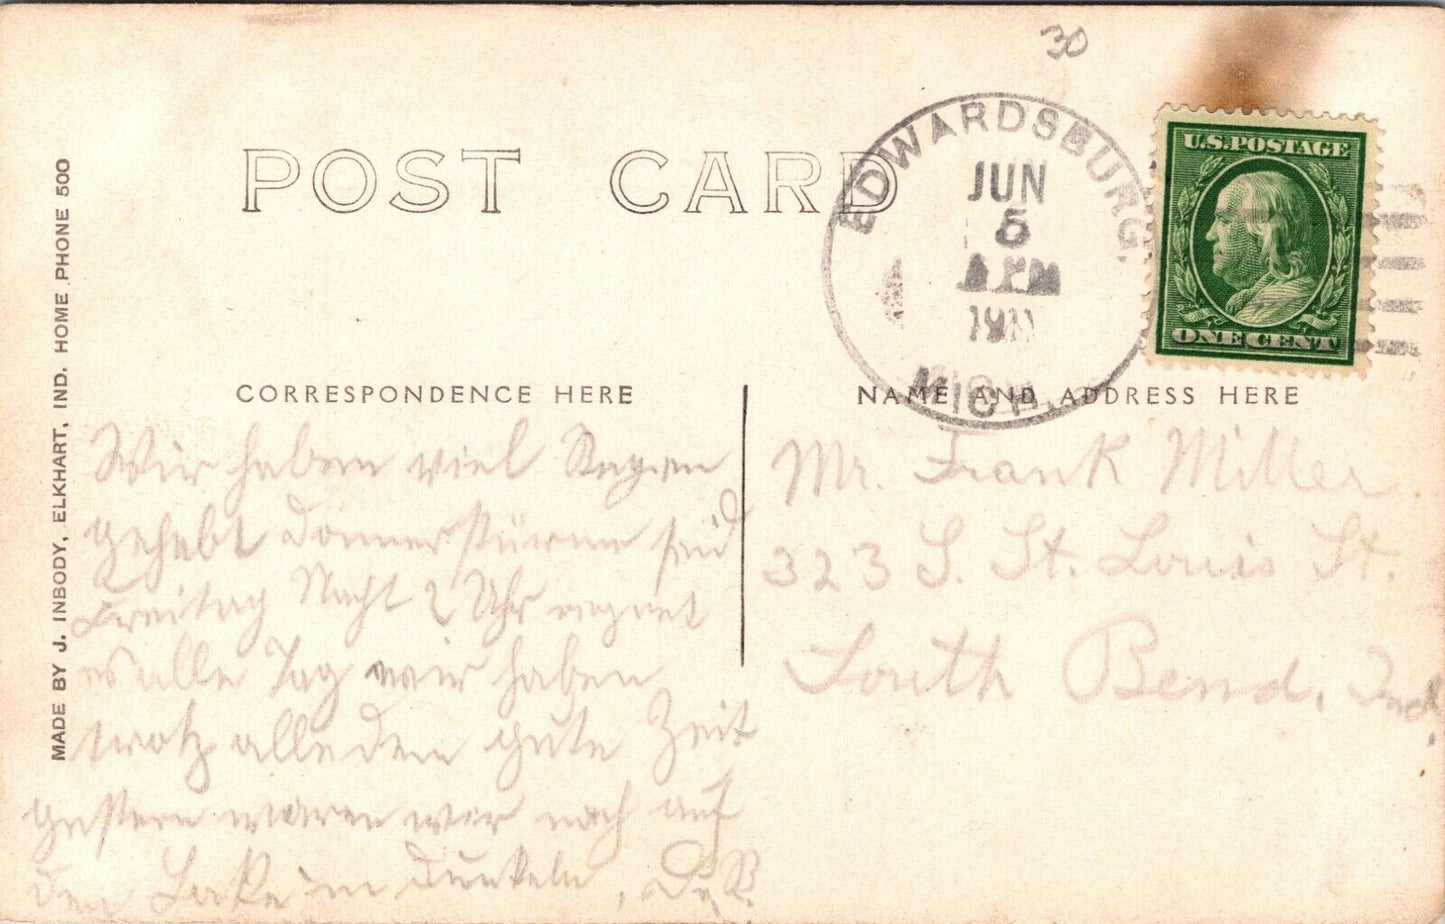 30
POST CARD
EDWARDSBURG,
JUN
5
1911
MICH.
U.S. POSTAGE
ONE CENT
MADE BY J. INBODY, ELKHART, IND. HOME PHONE 500
CORRESPONDENCE HERE
Wir haben viel Regen
gehabt Donnerstürme seid
Freitag Nacht 2 Uhr regnet
es alle Tag wir haben
trotz alledem gute Zeit
gestern waren wir noch auf
den Lake im Dunkeln,
NAME AND ADDRESS HERE
Mr. Frank Miller
323 S. St. Louis St.
South Bend, Ind.